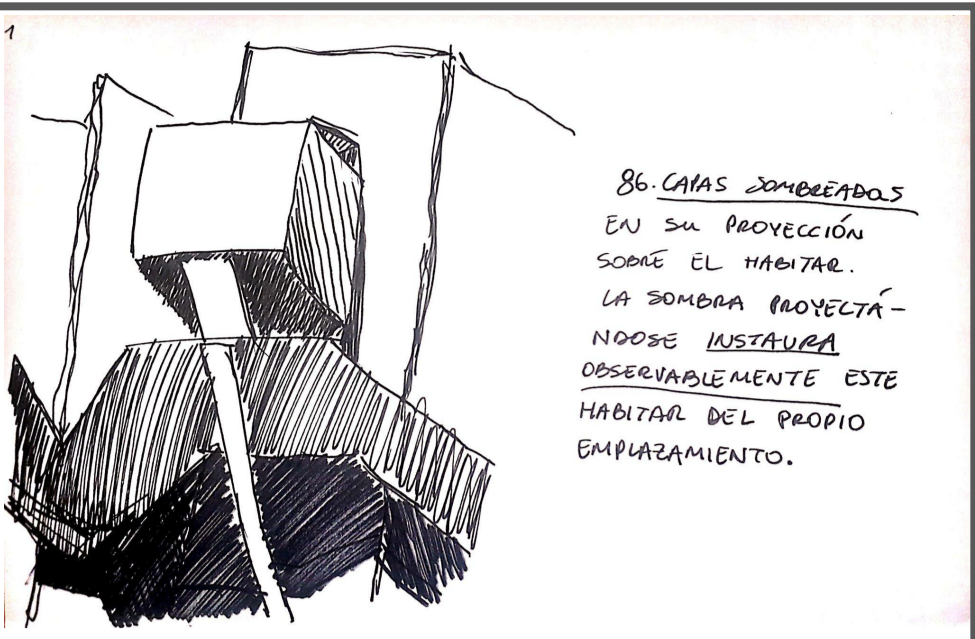 1
86. CAPAS SOMBREADAS
EN SU PROYECCIÓN
SOBRE EL HABITAR.
LA SOMBRA PROYECTÁ-
NDOSE INSTAURA
OBSERVABLEMENTE ESTE
HABITAR DEL PROPIO
EMPLAZAMIENTO.